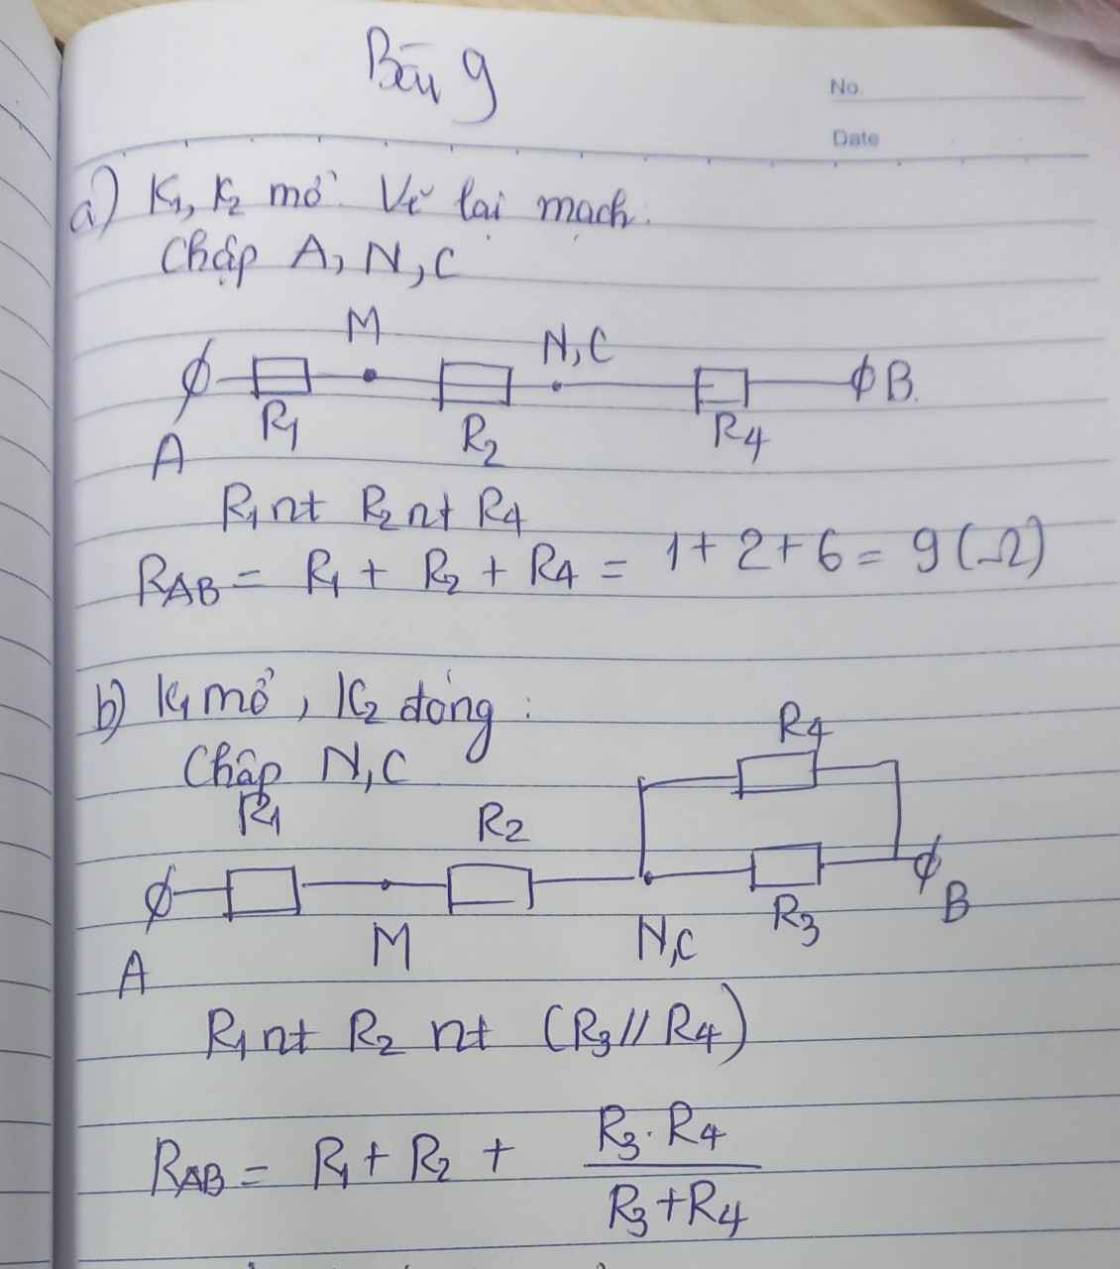 Bài 9
No.
Date
a) K1, K2 mở. Vẽ lại mạch.
Chập A, N, C
M N,C
A R1 R2 R4 B.
R1 nt R2 nt R4
RAB = R1 + R2 + R4 = 1 + 2 + 6 = 9 (Ω)
b) K1 mở, K2 đóng :
Chập N,C
R4
R1 R2
A M N,C R3 B
R1 nt R2 nt (R3 // R4)
RAB = R1 + R2 + R3 . R4
R3 + R4